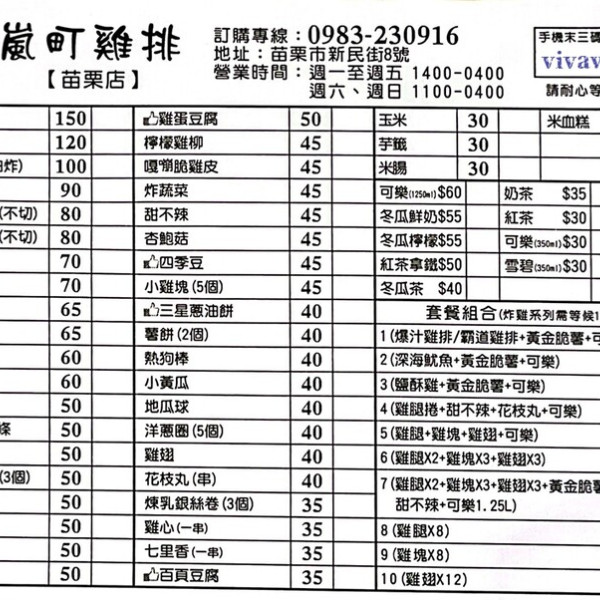 嵐町雞排
【苗栗店】
訂購專線：0983-230916
地址：苗栗市新民街8號
營業時間：週一至週五 1400-0400
週六、週日 1100-0400
手機末三碼
vivav
請耐心等
150 雞蛋豆腐 50 玉米 30 米血糕
120 檸檬雞柳 45 芋籤 30
炸) 100 嘎嘣脆雞皮 45 米腸 30
90 炸蔬菜 45 可樂(1250ml)$60 奶茶 $35
(不切) 80 甜不辣 45 冬瓜鮮奶$55 紅茶 $30
(不切) 80 杏鮑菇 45 冬瓜檸檬$55 可樂(350ml)$30
70 四季豆 45 紅茶拿鐵$50 雪碧(350ml)$30
70 小雞塊(5個) 45 冬瓜茶 $40
65 三星蔥油餅 40 套餐組合(炸雞系列需等候1
65 薯餅(2個) 40 1(爆汁雞排/霸道雞排+黃金脆薯+可
60 熱狗棒 40 2(深海魷魚+黃金脆薯+可樂)
60 小黃瓜 40 3(鹽酥雞+黃金脆薯+可樂)
50 地瓜球 40 4(雞腿捲+甜不辣+花枝丸+可樂)
條 50 洋蔥圈(5個) 40 5(雞腿+雞塊+雞翅+可樂)
50 雞翅 40 6(雞腿X2+雞塊X3+雞翅X3)
(3個) 50 花枝丸(串) 40 7(雞腿X2+雞塊X3+雞翅X3+黃金脆薯
50 煉乳銀絲卷(3個) 35 甜不辣+可樂1.25L)
50 雞心(一串) 35 8(雞腿X8)
50 七里香(一串) 35 9(雞塊X8)
50 百頁豆腐 35 10(雞翅X12)